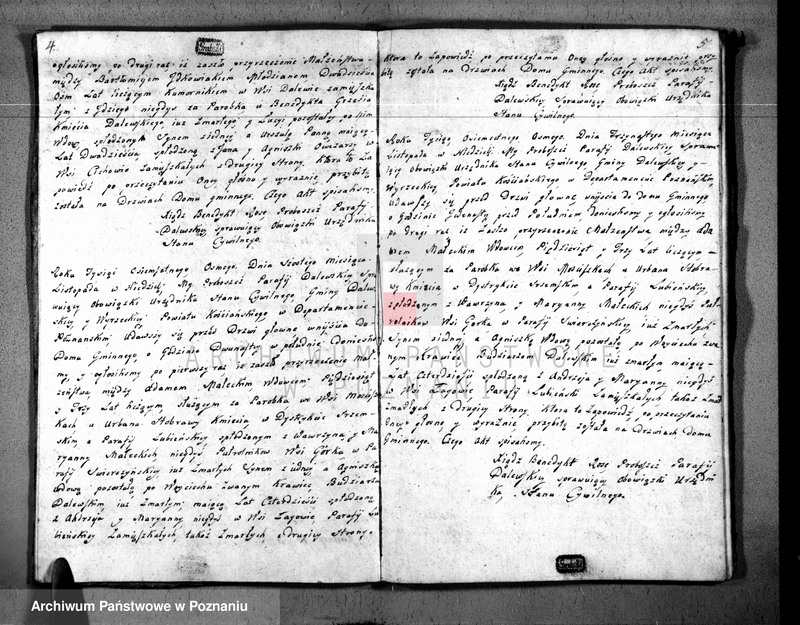 4.
ogłosiliśmy po drugi raz iż zaszło przyrzeczenie Małżeństwa
między Bartłomiejem Młodzianem Dwadzieścia
Ośm Lat liczącym Komornikiem w Wsi Dalewie zamiyszka
łym z niegdyś za Parobka u Benedykta
Kmiecia Dalewskiego iuż zmarłego y Łucyi pozostałey po nim
Wdowy spłodzonym Synem z iedney a Urszulą Panną maiącą
Lat Dwadzieścia spłodzoną z Jana y Agnieszki Owczarzy w
Wsi Cichowie zamiyszkałych z drugiey Strony. Która to Za
powiedź po przeczytaniu Oney głośno y wyraźnie przybitą
została na Drzwiach Domu gminnego. Czego Akt spisaliśmy.
Xiądz Benedykt Rose Proboszcz Parafij
Dalewskiey sprawuiący obowiązki Urzędnika
Stanu Cywilnego.
Roku Tysiąc Ośmsetnego Osmego. Dnia Szóstego miesiąca
Listopada w Niedzielę My Proboszcz Parafij Dalewskiey Spra
wuiący Obowiązki Urzędnika Stanu Cywilnego Gminy Dalew
skiey y Wyrzeckiey Powiatu Kościańskiego w Departamencie
Poznańskim. Udawszy się przed Drzwi głowne wniyścia do
Domu Gminnego, o Godzinie Dwunastey w południe Donieśliś
my y ogłosiliśmy po pierwszy raz iż zaszło przyrzeczenie Mał
żeństwa między Adamem Małeckim Wdowcem Pięćdziesiąt
y Trzy Lat liczącym, służącym za Parobka we Wsi
kach u Urbana Stobrawy Kmiecia w Dystrykcie Śrzem
skim a Parafij Lubińskiey spłodzonym z Wawrzyna y Ma
ryanny Małeckich niegdyś Półrolników Wsi Górka w Pa
rafij Swierczyńskiey iuż Zmarłych Synem z iedney a Agnieszką
Wdową pozostałą po Woyciechu zwanym Krawiec Budziarzu
Dalewskim, iuż Zmarłym, maiącą Lat Czterdzieści spłodzoną
z Andrzeja y Maryanny niegdyś w Wsi Zagowie Parafij Lu
bińskiey Zamiyszkałych, także Zmarłych z drugiey Strony.
5
Która to Zapowiedź po przeczytaniu Oney głośno y wyraźnie przy
bitą została na Drzwiach Domu Gminnego. Czego Akt spisaliśmy.
Xiądz Benedykt Rose Proboszcz Parafij
Dalewskiey Sprawuiący Obowiązki Urzędnika
Stanu Cywilnego.
Roku Tysiąc Ośmsetnego Osmego. Dnia Trzynastego miesiąca
Listopada w Niedzielę, My Proboszcz Parafij Dalewskiey Sprawu
iący Obowiązki Urzędnika Stanu Cywilnego Gminy Dalewskiey y
Wyrzeckiey, Powiatu Kościańskiego w Departamencie Poznańskim,
Udawszy się przed Drzwi głowne wniyścia do Domu Gminnego
o Godzinie Jedenastey przed Południem, donieśliśmy y ogłosiliśmy
po drugi raz iż Zaszło przyrzeczenie Małżeństwa między Ada
mem Małeckim Wdowcem, Pięćdziesiąt y Trzy Lat liczącym
służącym za Parobka we Wsi u Urbana Stobra
wy Kmiecia w Dystrykcie Śrzemskim a Parafij Lubińskiey
spłodzonym z Wawrzyna y Maryanny Małeckich niegdyś Pół
rolników Wsi Górka w Parafij Swierczyńskiey, iuż Zmarłych
Synem z iedney, a Agnieszką Wdową pozostałą po Woyciechu zwa
nym Krawiec Budziarzem Dalewskim iuż zmarłym maiącą
Lat Czterdzieści spłodzoną z Andrzeja y Maryanny niegdyś
w Wsi Zagowie Parafij Lubińskiey Zamiyszkałych także Zmar
zmarłych z drugiey Strony. Która to Zapowiedź, po przeczytaniu
Oney głośno y wyraźnie przybitą została na Drzwiach Domu
Gminnego. Czego Akt spisaliśmy.
Xiądz Benedykt Rose Proboszcz Parafij
Dalewskiey, sprawuiący Obowiązki Urzędni
ka, Stanu Cywilnego.
ARCHIWUM PAŃSTWOWE
W POZNANIU
Archiwum Państwowe w Poznaniu